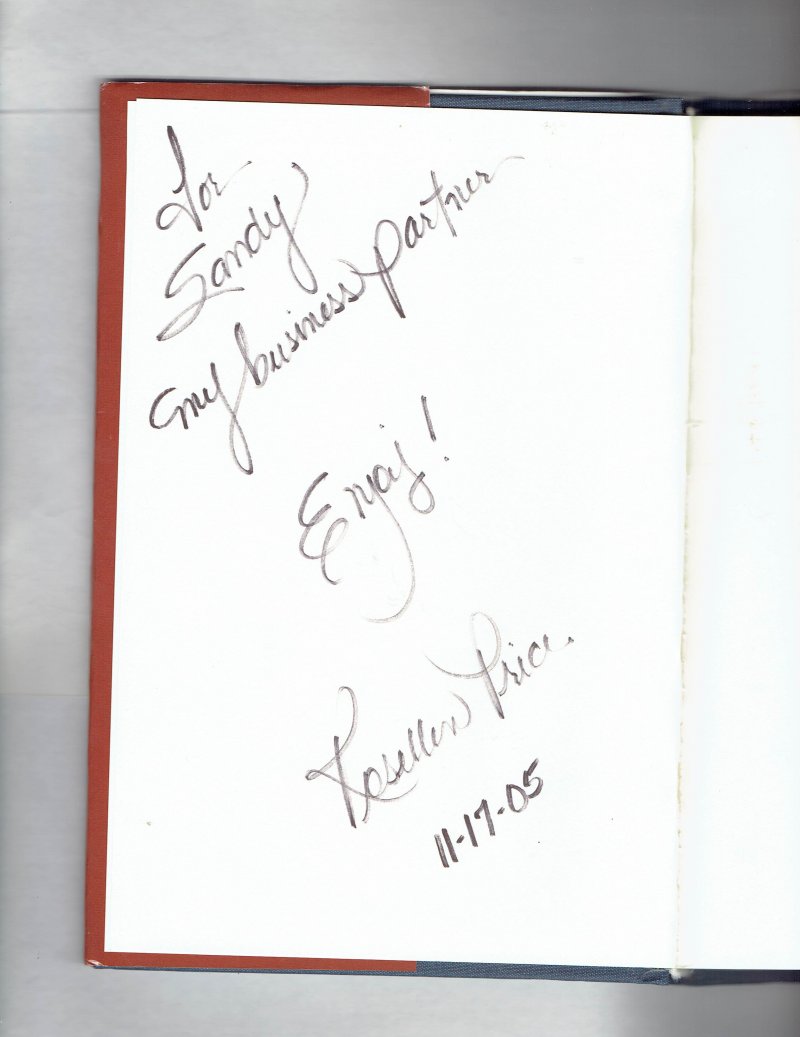 For
Sandy
my business partner
Enjoy!
Rosellen Price
11-17-05